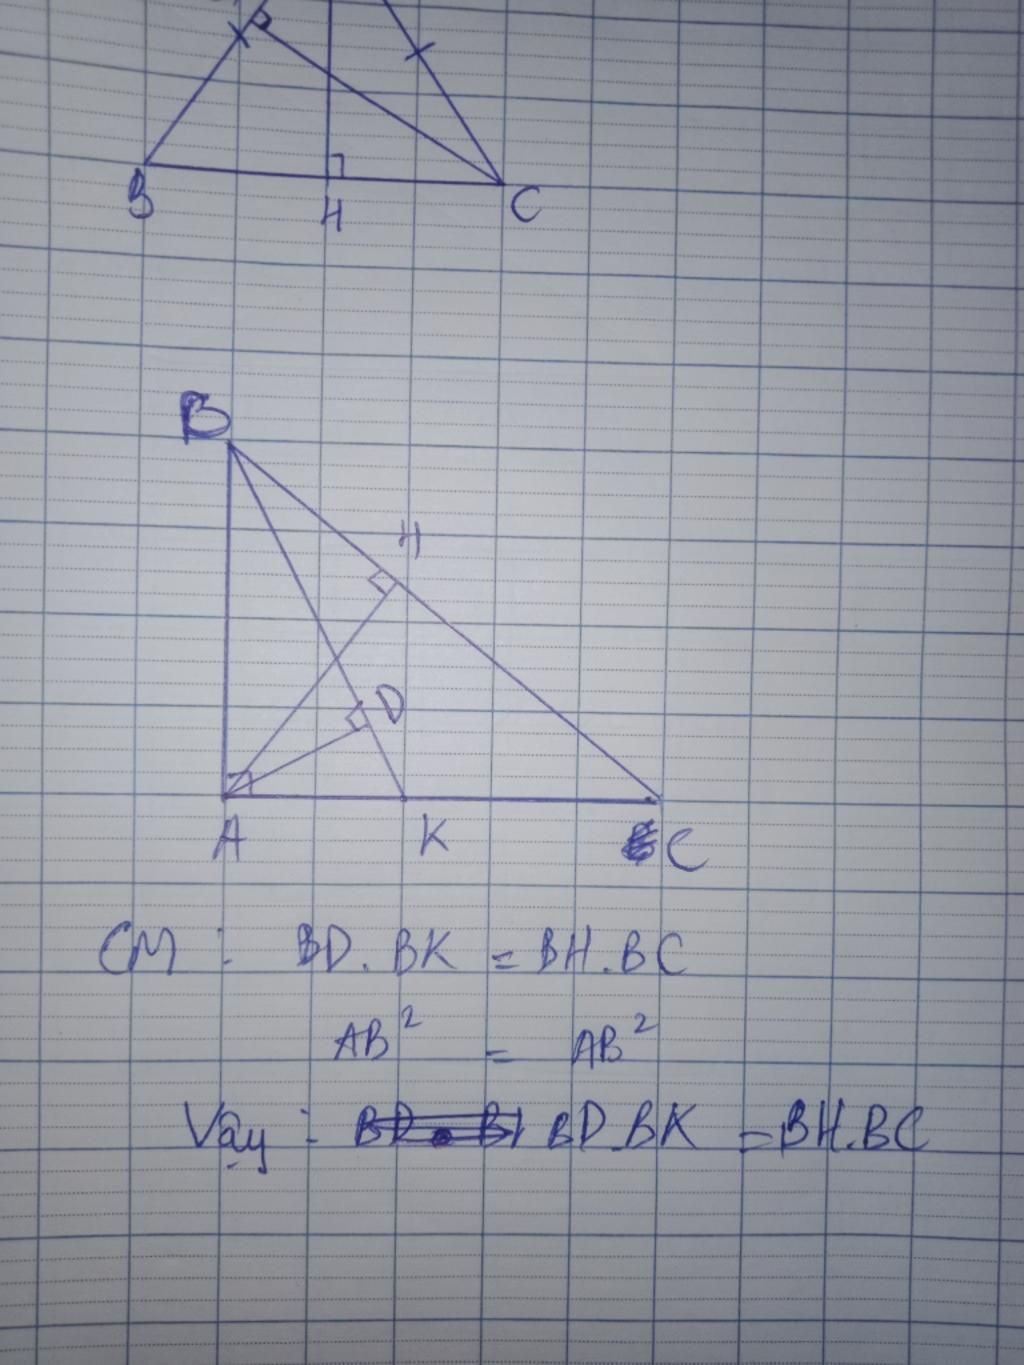 B
H
C
B
H
D
A
K
C
CM : BD. BK = BH.BC
AB² = AB²
Vậy : BD.BK = BH.BC